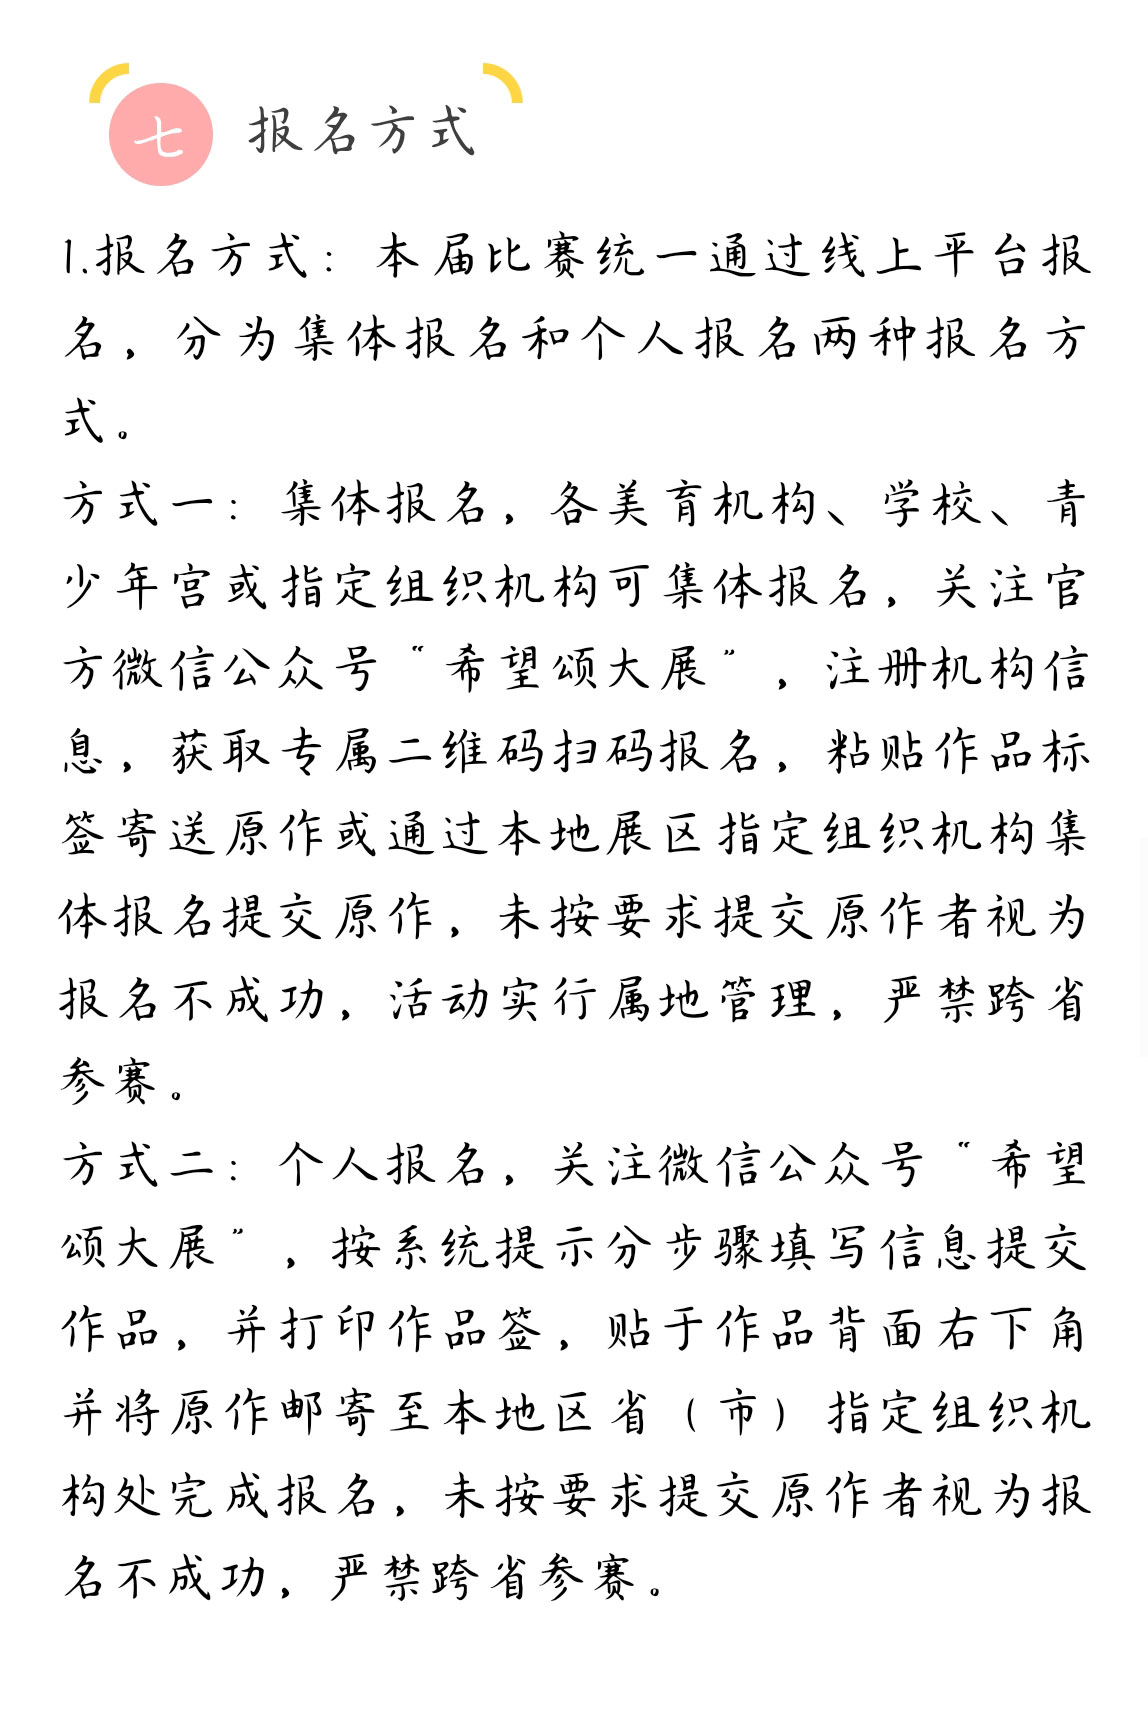 七 报名方式
1.报名方式：本届比赛统一通过线上平台报
名，分为集体报名和个人报名两种报名方
式。
方式一：集体报名，各美育机构、学校、青
少年宫或指定组织机构可集体报名，关注官
方微信公众号“希望颂大展”，注册机构信
息，获取专属二维码扫码报名，粘贴作品标
签寄送原作或通过本地展区指定组织机构集
体报名提交原作，未按要求提交原作者视为
报名不成功，活动实行属地管理，严禁跨省
参赛。
方式二：个人报名，关注微信公众号“希望
颂大展”，按系统提示分步骤填写信息提交
作品，并打印作品签，贴于作品背面右下角
并将原作邮寄至本地区省（市）指定组织机
构处完成报名，未按要求提交原作者视为报
名不成功，严禁跨省参赛。